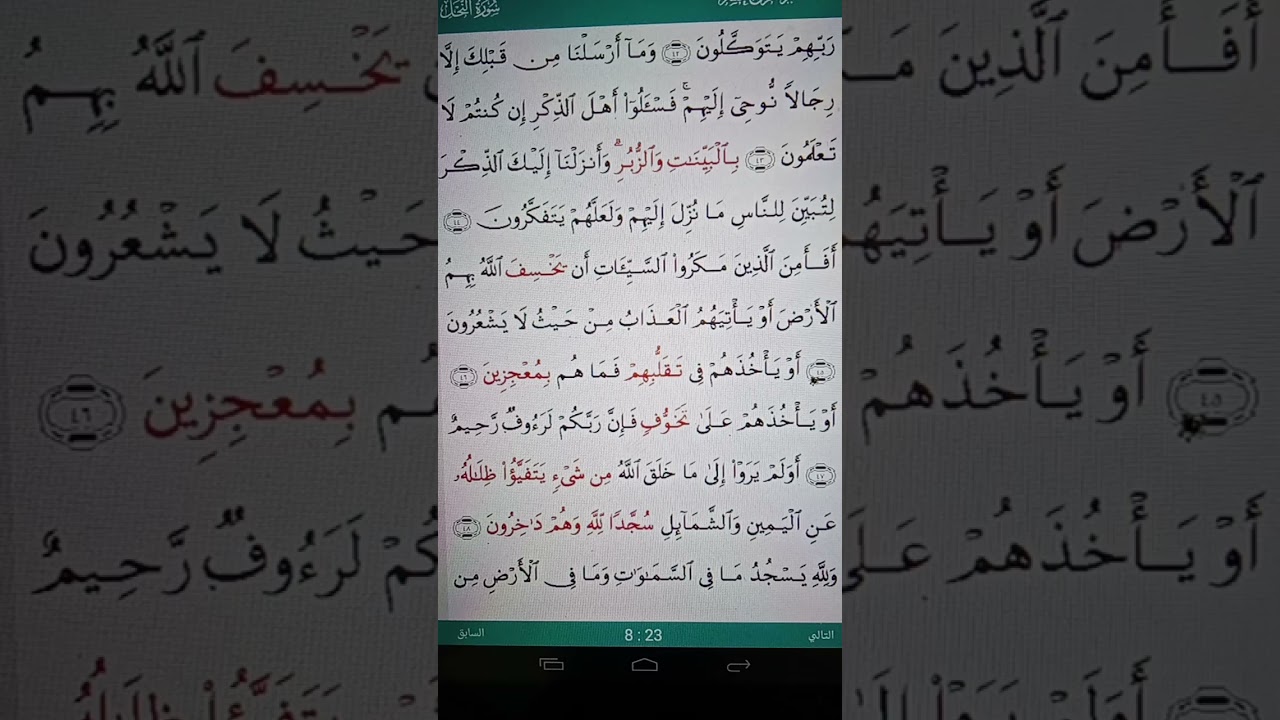 سُورَةُ النَّحْلِ
رَبِّهِمْ يَتَوَكَّلُونَ ٤٢ وَمَآ أَرْسَلْنَا مِن قَبْلِكَ إِلَّا
رِجَالًا نُّوحِىٓ إِلَيْهِمْ ۚ فَسْـَٔلُوٓا۟ أَهْلَ ٱلذِّكْرِ إِن كُنتُمْ لَا
تَعْلَمُونَ ٤٣ بِٱلْبَيِّنَـٰتِ وَٱلزُّبُرِ ۗ وَأَنزَلْنَآ إِلَيْكَ ٱلذِّكْرَ
لِتُبَيِّنَ لِلنَّاسِ مَا نُزِّلَ إِلَيْهِمْ وَلَعَلَّهُمْ يَتَفَكَّرُونَ ٤٤
أَفَأَمِنَ ٱلَّذِينَ مَكَرُوا۟ ٱلسَّيِّـَٔاتِ أَن يَخْسِفَ ٱللَّهُ بِهِمُ
ٱلْأَرْضَ أَوْ يَأْتِيَهُمُ ٱلْعَذَابُ مِنْ حَيْثُ لَا يَشْعُرُونَ
٤٥ أَوْ يَأْخُذَهُمْ فِى تَقَلُّبِهِمْ فَمَا هُم بِمُعْجِزِينَ ٤٦
أَوْ يَأْخُذَهُمْ عَلَىٰ تَخَوُّفٍ فَإِنَّ رَبَّكُمْ لَرَءُوفٌ رَّحِيمٌ
٤٧ أَوَلَمْ يَرَوْا۟ إِلَىٰ مَا خَلَقَ ٱللَّهُ مِن شَىْءٍ يَتَفَيَّؤُا۟ ظِلَـٰلُهُۥ
عَنِ ٱلْيَمِينِ وَٱلشَّمَآئِلِ سُجَّدًا لِّلَّهِ وَهُمْ دَٰخِرُونَ ٤٨
وَلِلَّهِ يَسْجُدُ مَا فِى ٱلسَّمَـٰوَٰتِ وَمَا فِى ٱلْأَرْضِ مِن
التالي 8 : 23 السابق